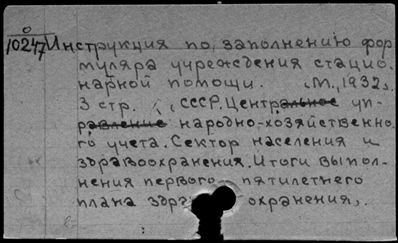 0
10247 Инструкция по заполнению фор
муляра учреждения стацио
нарной помощи. М., 1932.
3 стр. (СССР. Центральное уп-
равление народно-хозяйственно
го учета. Сектор населения и
здравоохранения. Итоги выпол-
нения первого пятилетнего
плана здра охранения).